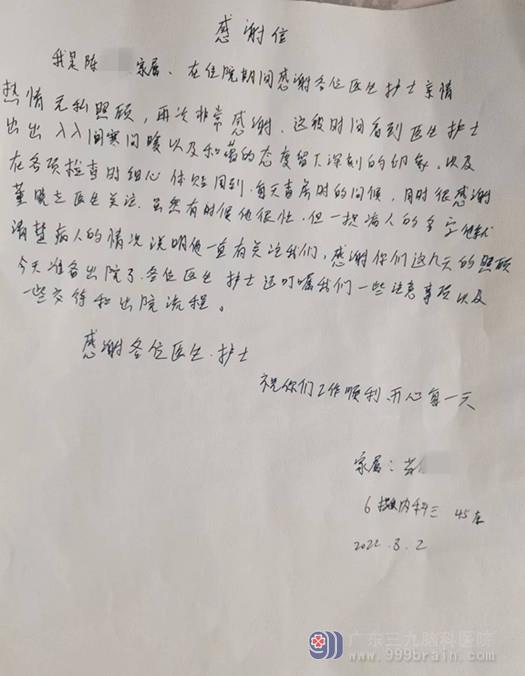 感谢信
我是陈 家属、在住院期间感谢各位医生护士亲情
热情无私照顾，再次非常感谢，这段时间看到医生护士
出出入入问寒问暖以及和蔼的态度留下深刻的印象，以及
在各项检查时细心体贴周到，每天查房时的问候，同时很感谢
董晓芝医生关注，虽然有时候他很忙，但一提病人的名字他就
清楚病人的情况说明他一直有关注我们，感谢你们这几天的照顾
今天准备出院了，各位医生护士还叮嘱我们一些注意事项以及
一些交待和出院流程。
感谢各位医生、护士
祝你们工作顺利，开心每一天
家属：
6 内科三 45床
2022.8.2
广东三九脑科医院
www.999brain.com